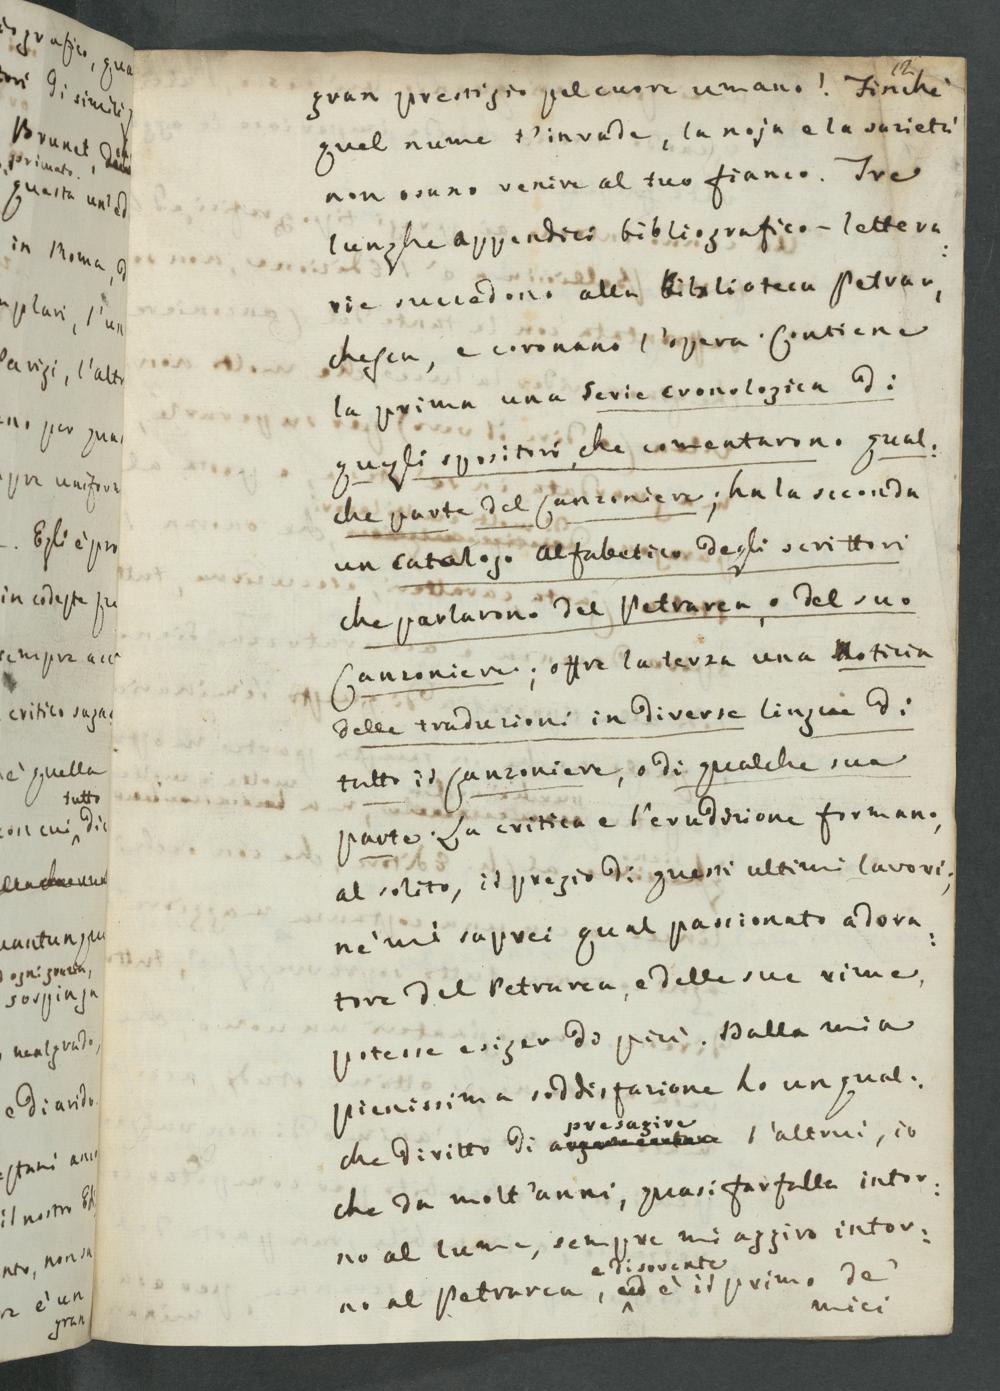 12
gran prestigio pel cuore umano! Finchè
quel nume t'invade, la noja e la sazietà
non osano venire al tuo fianco. Tre
lunghe appendici bibliografico-lettera:
rie succedono alla Biblioteca Petrar,
chesca, e coronano l'opera. Contiene
la prima una Serie cronologica di
quegli spositori, che comentarono qual:
che parte del Canzoniere; ha la seconda
un catalogo alfabetico degli scrittori
che parlarono del Petrarca, o del suo
Canzoniere; offre la terza una Notizia
delle traduzioni in diverse lingue di
tutto il Canzoniere, o di qualche sua
parte. La critica e l'erudizione formano,
al solito, il pregio di questi ultimi lavori;
nè mi saprei qual passionato adora:
tore del Petrarca, e delle sue rime,
potesse esiger di più. Dalla mia
pienissima soddisfazione ho un qual:
che diritto di argomentare presagire l'altrui, io
che da molt'anni, quasi farfalla intor:
no al lume, sempre mi aggiro intor:
no al Petrarca, e disovente ed è il primo de'
miei
Brunet,
primato.
questa un'ed
in Roma, d
mplari, l'un
Parigi, l'altr
. Egli è pro
in codeste
critico sagac
è quella
tutto
con cui dic
ogni grazia,
sospinga
malgrado,
e di arido
il nostro
è un
gran